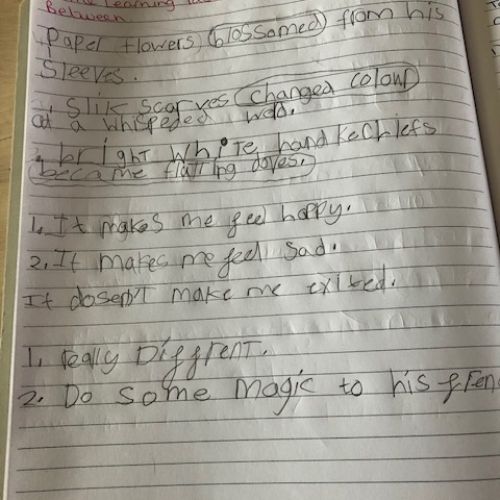 Learning
Between
Paper flowers blossomed from his
Sleeves.
Slik scarves changed colour
at a whispeded wad.
bright white handkechiefs
became flutting doves.
1. It makes me feel happy.
2. It makes me feel sad.
It dosen't make me exited.
1. really Diffrent.
2. Do some magic to his fren